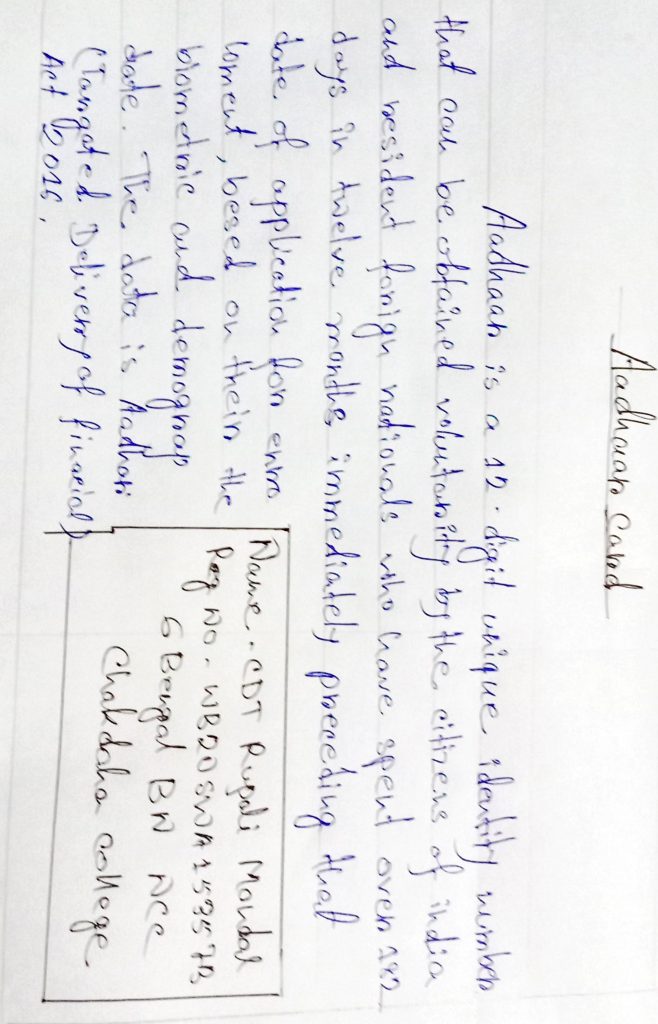 Aadhaar Card
Aadhaar is a 12-digit unique identity number
that can be obtained voluntarity by the citizens of india
and resident forign nationals who have spent over 182
days in twelve months immediately preceding that
date of application for enro
lment, besed on their the
biometric and demograp
date. The data is Aadhar
(Tangated Delivery of finacial)
Act 2016,
Name - CDT Rupali Mondal
Reg No. WB20SWA153573
5 Bengal BN NCC
Chakdaha College